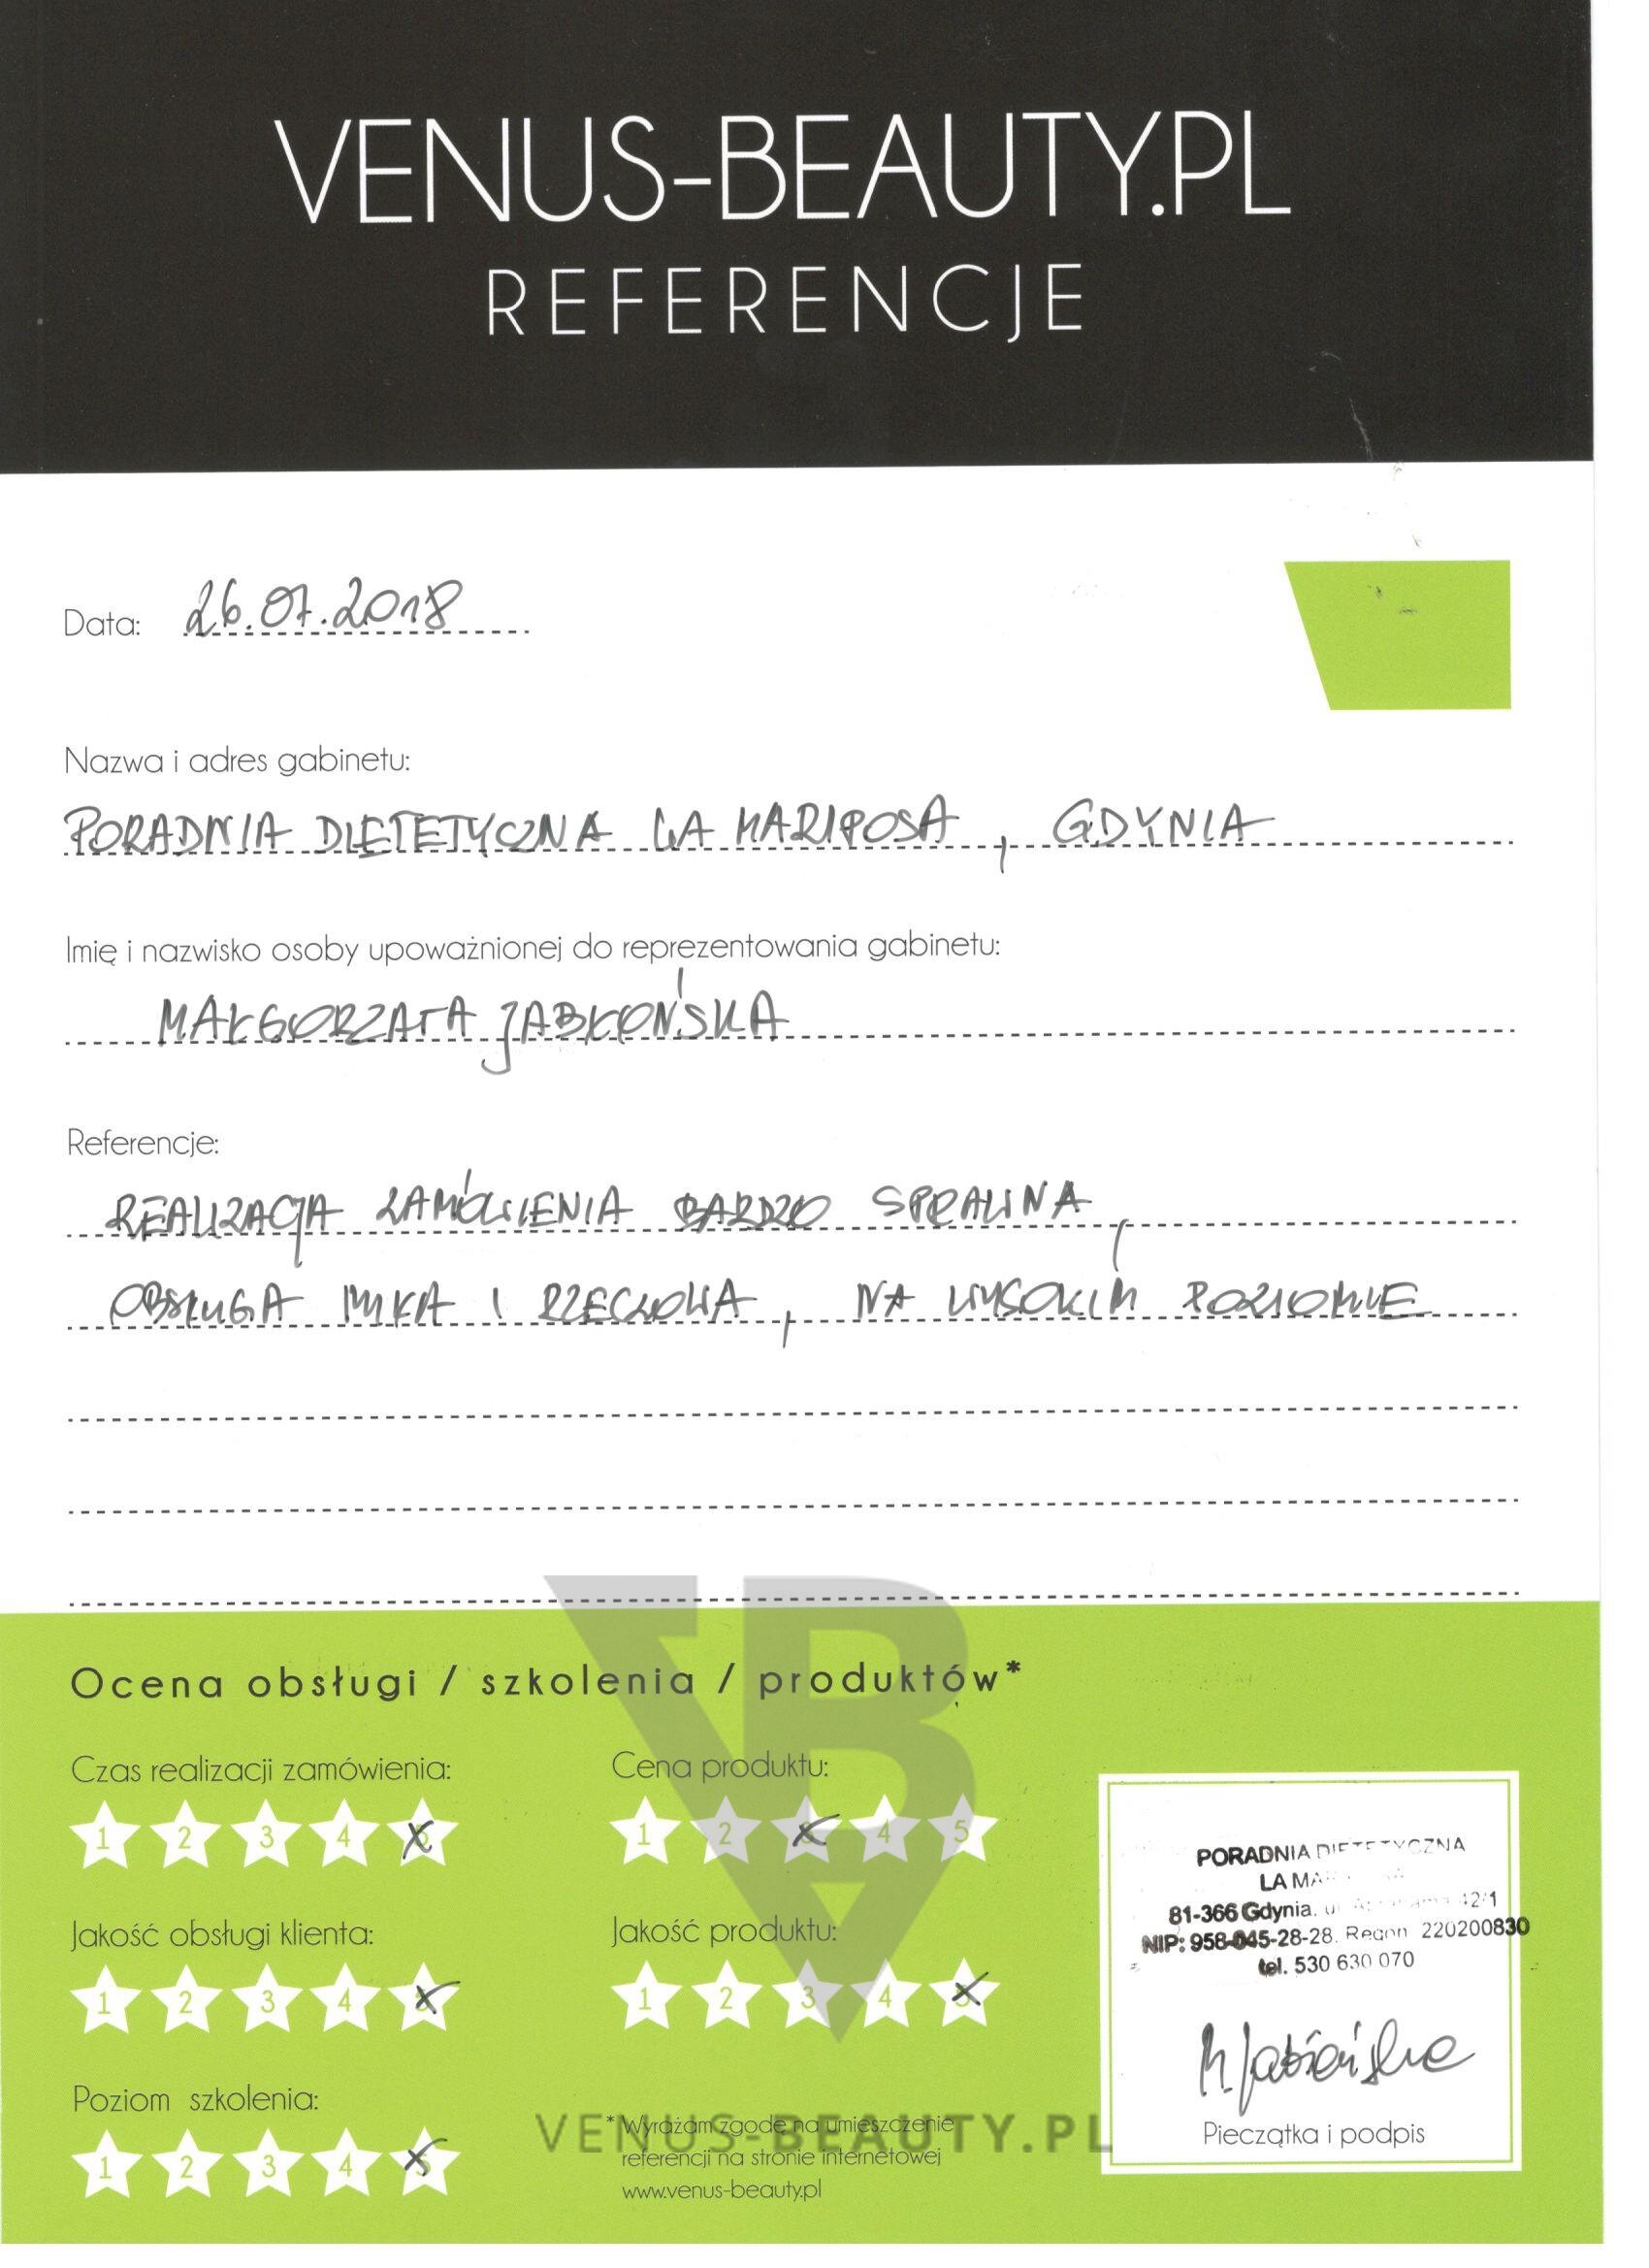 VENUS-BEAUTY.PL
REFERENCJE
Data: 26.07.2018
Nazwa i adres gabinetu:
PORADNIA DIETETYCZNA LA MARIPOSA, GDYNIA
Imię i nazwisko osoby upoważnionej do reprezentowania gabinetu:
MAŁGORZATA JABŁOŃSKA
Referencje:
REALIZACJA ZAMÓWIENIA BARDZO SPRAWNA,
OBSŁUGA MIŁA I RZECZOWA, NA WYSOKIM POZIOMIE
Ocena obsługi / szkolenia / produktów*
Czas realizacji zamówienia:
1 2 3 4 5
Cena produktu:
1 2 3 4 5
Jakość obsługi klienta:
1 2 3 4 5
Jakość produktu:
1 2 3 4 5
Poziom szkolenia:
1 2 3 4 5
* Wyrażam zgodę na umieszczenie
referencji na stronie internetowej
www.venus-beauty.pl
VB
VENUS-BEAUTY.PL
PORADNIA DIETETYCZNA
LA
81-366 Gdynia, 42/1
NIP: 958-045-28-28, Regon 220200830
tel. 530 630 070
M. Jabłońska
Pieczątka i podpis